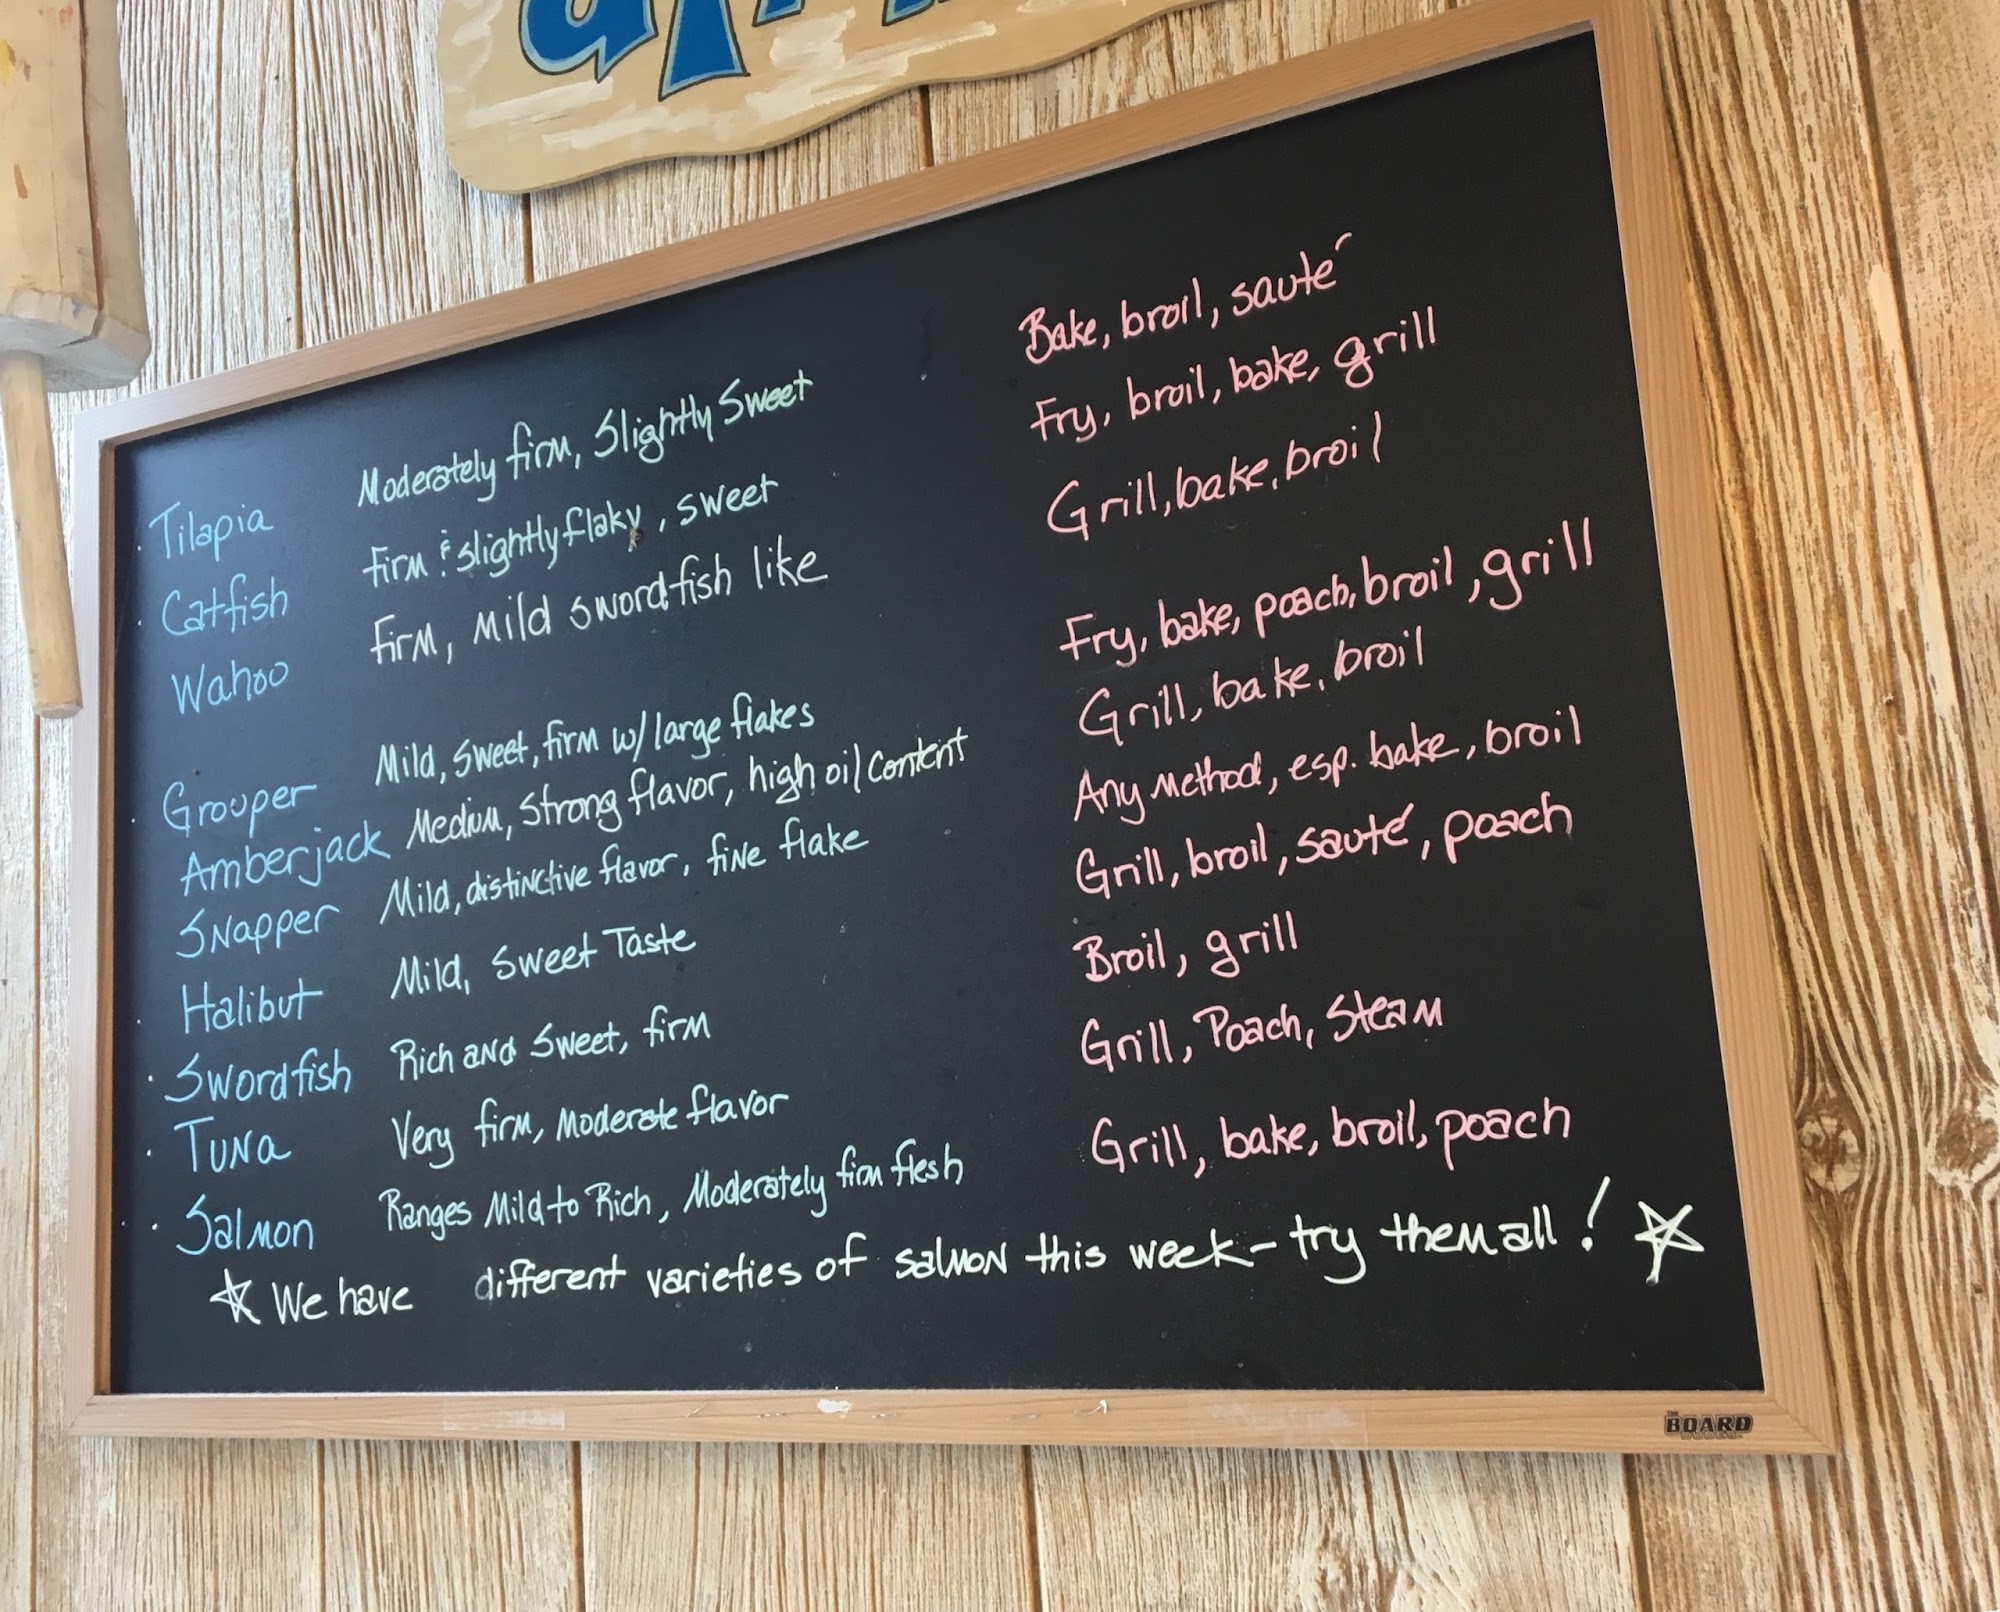 Tilapia Moderately firm, Slightly Sweet Bake, broil, sauté
Catfish firm & slightly flaky, sweet Fry, broil, bake, grill
Wahoo firm, Mild swordfish like Grill, bake, broil
Grouper Mild, sweet, firm w/ large flakes Fry, bake, poach, broil, grill
Amberjack Medium, Strong flavor, high oil content Grill, bake, broil
Snapper Mild, distinctive flavor, fine flake Any method, esp. bake, broil
Halibut Mild, Sweet Taste Grill, broil, sauté, poach
Swordfish Rich and Sweet, firm Broil, grill
Tuna Very firm, Moderate flavor Grill, Poach, Steam
Salmon Ranges Mild to Rich, Moderately firm flesh Grill, bake, broil, poach
☆ We have different varieties of salmon this week - try them all! ☆
THE BOARD DUDES